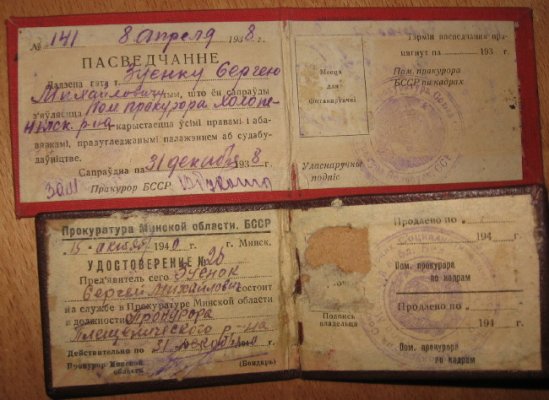 № 141 8 апреля 1938 г.
ПАСВЕДЧАННЕ
Дадзена гэта т. Зуенку Сергею
Михайловичу у тым, што ён сапраўды
з'яўляецца Пом. прокурора
р-на карыстаецца ўсімі правамі і аба-
вязкамі, прадугледжанымі палажэннем аб судабу-
даўніцтве.
Сапраўдна да 31 декабря 1938 г.
Прокурор БССР
Месца
для
фотакарткі
Уласнаручны
подпіс
Тэрмін пасведчання пра-
цягнут па 193 г.
Пом. пракурора
БССР па кадрах
Прокуратура Минской области, БССР
15 октября 1940 г. г. Минск.
УДОСТОВЕРЕНИЕ № 26
Пред'явитель сего Зуенок
Сергей Михайлович состоит
на службе в Прокуратуре Минской области
в должности Прокурора
Плещеничского р-на
Действительно по 31 декабря
Прокурор Минской
области (Бондарь)
Подпись
владельца
Продлено по
194 г.
Пом. прокурора
по кадрам
Продлено по
194 г.
Пом. прокурора
по кадрам